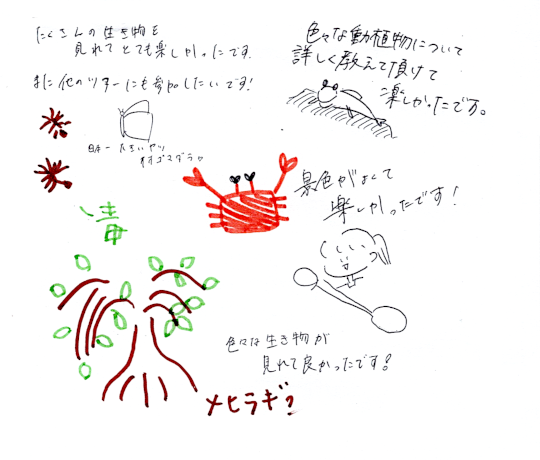 たくさんの生き物を
見れてとても楽しかったです.
また他のツアーにも参加したいです!
日本一
オオゴマダラ
色々な動植物について
詳しく教えて頂けて
楽しかったです。
景色がよくて
楽しかったです!
毒
色々な生き物が
見れて良かったです!
メヒラギ?